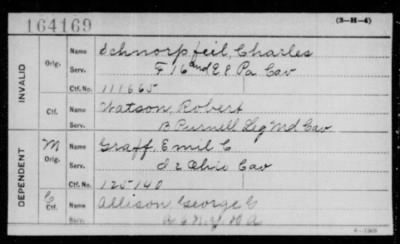 164169 (3-H-4)
INVALID
Orig. Name Schnorpfeil, Charles
Serv. F 16 and E 8 Pa Cav
Ctf. No. 111665
Ctf. Name Watson, Robert
Serv. B Purnell Leg Md Cav
DEPENDENT
M Orig. Name Graff, Emil C
Serv. I 2 Ohio Cav
Ctf. No. 125140
C Ctf. Name Allison, George C
Serv. A 6 N.Y. H A